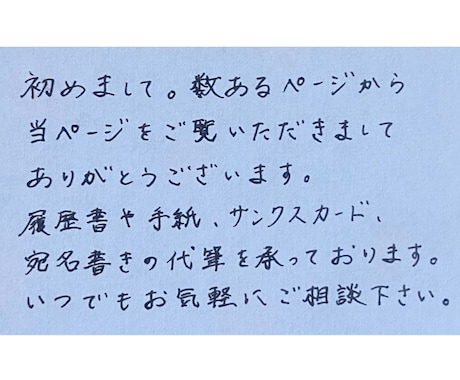 初めまして。数あるページから
当ページをご覧いただきまして
ありがとうございます。
履歴書や手紙、サンクスカード、
宛名書きの代筆を承っております。
いつでもお気軽にご相談下さい。